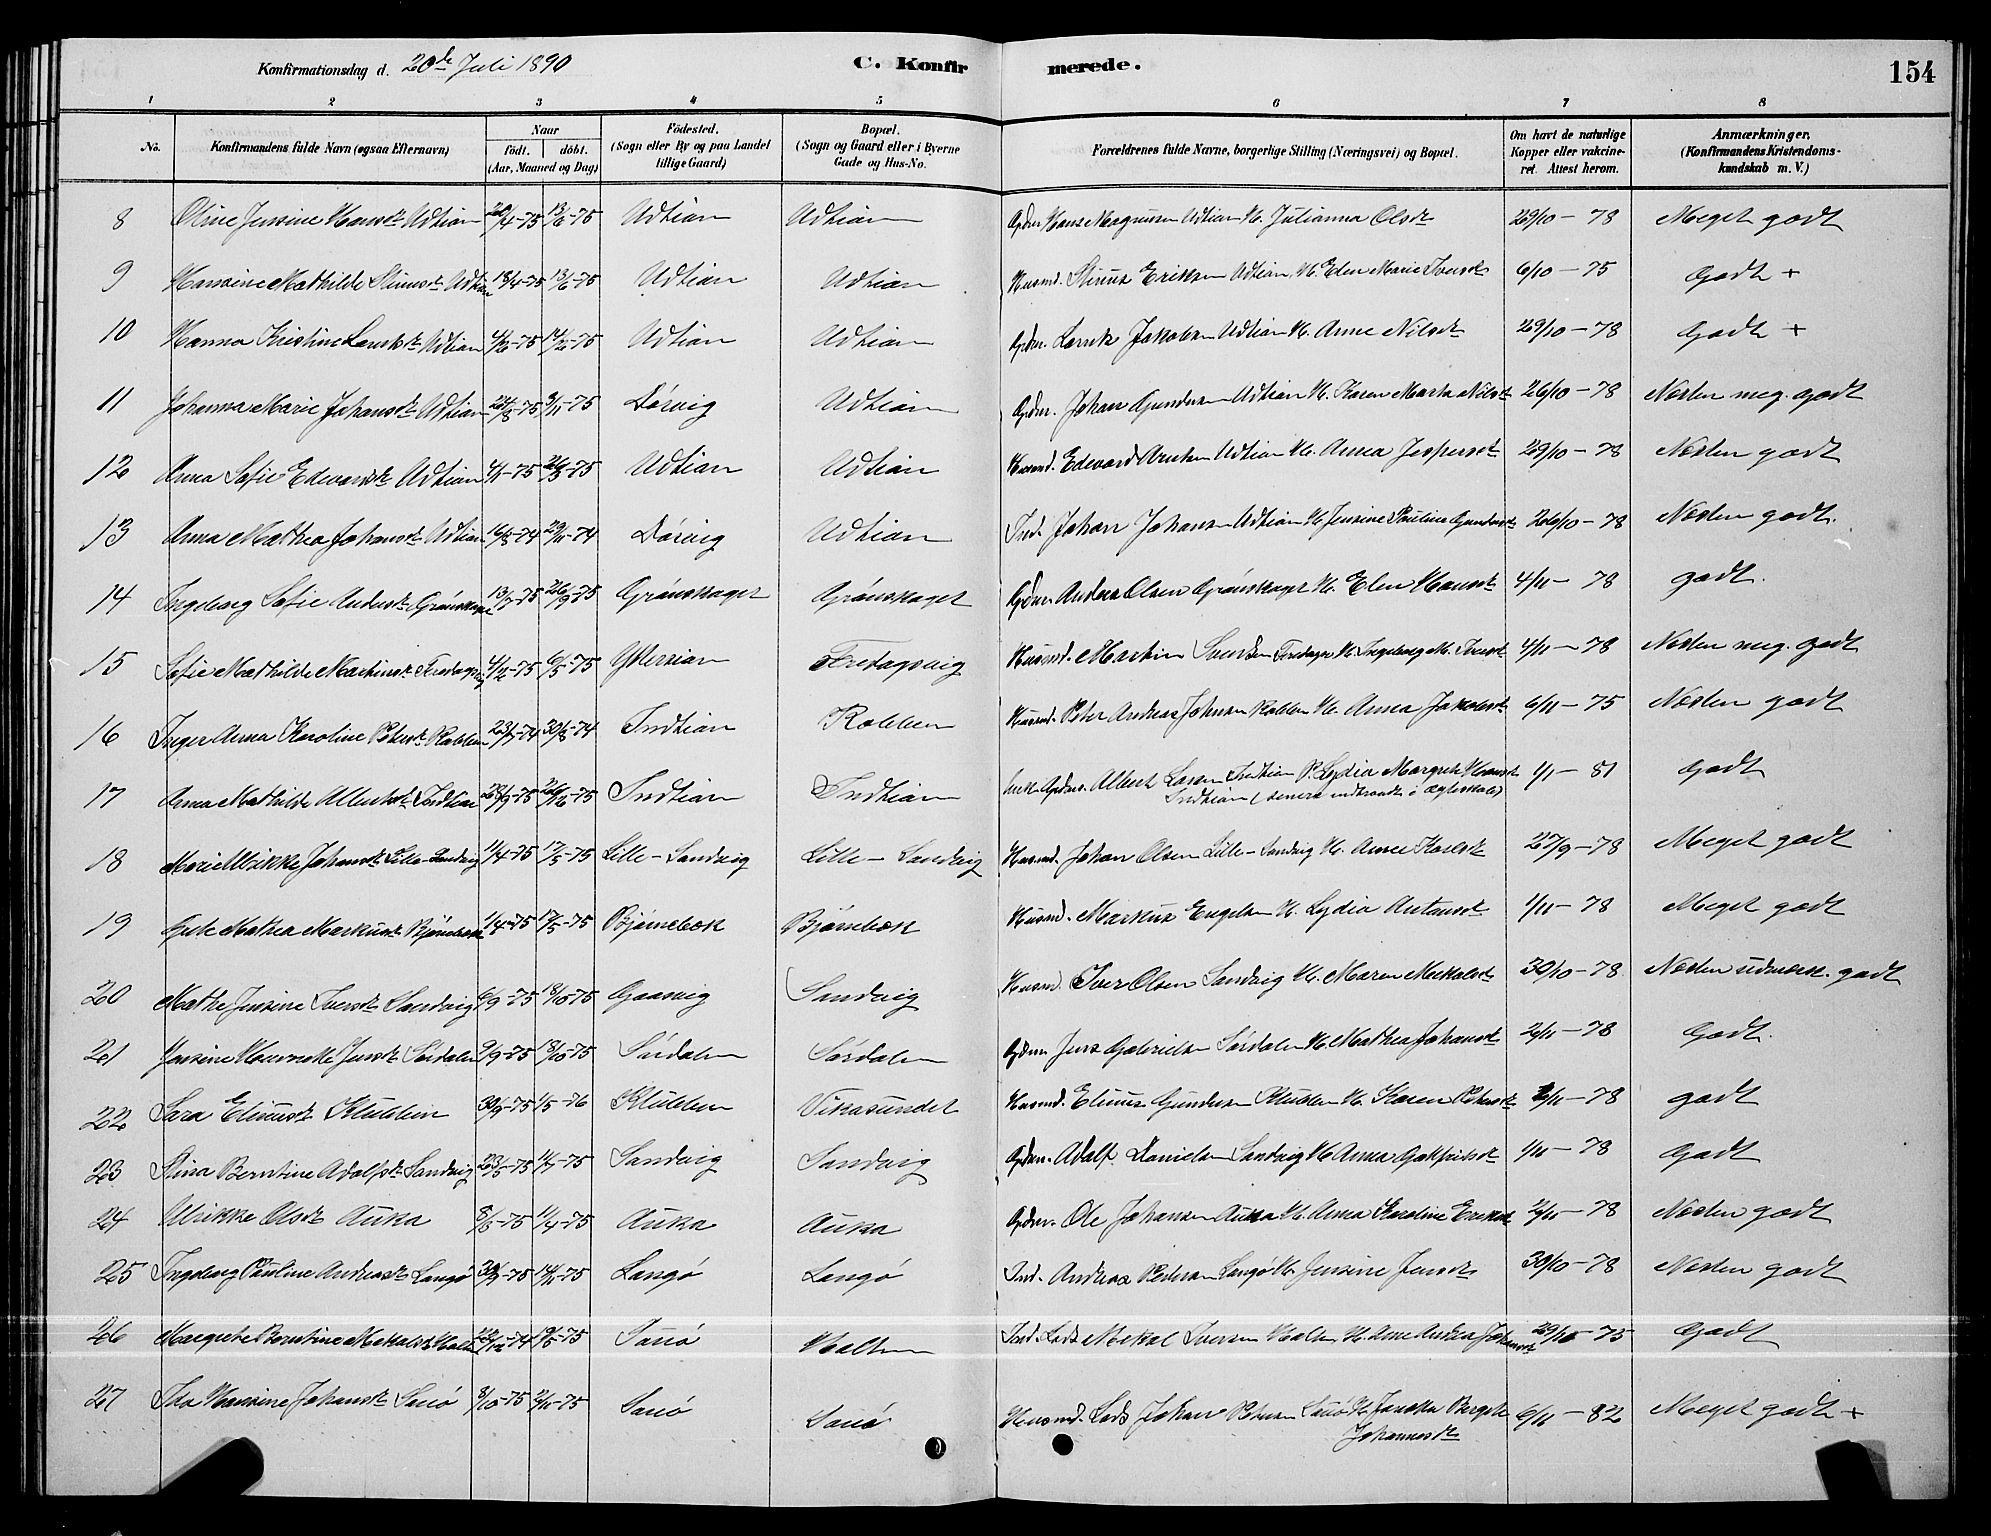 Konfirmationsdag d. 20de Juli 1890 C. Konfirmerede. 154
1 2 3 4 5 6 7 8
No. Konfirmandens fulde Navn (ogsaa Efternavn) Naar födt. döbt. (Aar, Maaned og Dag) Födested. (Sogn eller By og paa Landet tillige Gaard) Bopæl. (Sogn og Gaard eller i Byerne Gade og Hus-No. Forældrenes fulde Navne, borgerlige Stilling (Næringsvei) og Bopæl. Om havt de naturlige Kopper eller vakcineret. Attest herom. Anmærkninger, (Konfirmandens Kristendomskundskab m. V.)
8 Oline Jensine Hansdt Udtian 20/4-75 13/6-75 Udtian Udtian Gdbr. Hans Magnusen Udtian H. Julianna Olsdt 29/10-78 Meget godt
9 Hansine Mathilde Stinusdt Udtian 18/4-75 13/6-75 Udtian Udtian Husmd. Stinus Eriksen Udtian H. Elen Marie Iversdt 6/10-75 Godt +
10 Hanna Kristine Udtian 4/6-75 14/6-75 Udtian Udtian Gdbr. Jakobsen Udtian H. Anne Nilsdt 29/10-78 Godt +
11 Johanna Marie Johansdt Udtian 24/8-75 9/11-75 Dörvig Udtian Gdbr. Johan Gundersen Udtian H. Karen Marta Nilsdt 26/10-78 Næsten meg. godt
12 Anna Sofie Edvardsdt Udtian 4/1-75 26/3-75 Udtian Udtian Husmd. Edevard Arntsen Udtian H. Anna Jespersdt 29/10-78 Næsten godt
13 Anna Mathea Johansdt Udtian 16/8-74 29/11-74 Dörvig Udtian Ind. Johan Johansen Udtian H. Jensine Pauline Gundersdt 26/10-78 Næsten godt.
14 Ingeborg Sofie Andersdt Grönskaget 13/7-75 26/9-75 Grönskaget Grönskaget Gdbr. Anders Olsen Grönskaget H. Elen Hansdt 4/11-78 godt.
15 Sofie Mathilde Martinsdt Fredagsvig 4/2-75 6/5-75 Yttersian Fredagsvig Husmd. Martin Svendsen H. Ingeborg M. Iversdt 4/11-78 Næsten meg. godt
16 Inger Anna Karoline Petersdt Kobben 23/7-74 30/8-74 Indtian Kobben Husmd. Peter Andreas Johnsen Kobben H. Anna Jakobsdt 6/11-75 Næsten godt
17 Anna Mathilde Albertsdt Indtian 28/9-75 26/12-75 Indtian Indtian Gdbr. Albert Larsen Indtian P. Lydia Margrete Hansdt 1/1-81 Godt
Indtian (senere indtraadt i Ægteskab)
18 Marie Ulrikke Johansdt Lille-Sandvig 11/4-75 17/5-75 Lille-Sandvig Lille-Sandvig Husmd. Johan Olsen Lille-Sandvig H. Anne Karlsdt 27/9-78 Meget godt
19 Mathea Markusdt Björnebæk 1/4-75 17/5-75 Björnebæk Björnebæk Husmd. Markus Engelsen H. Lydia Antonsdt 1/11-78 Meget godt
20 Mathe Jensine Iversdt Sandvig 6/9-75 18/10-75 Gaasvig Sandvig Husmd. Iver Olsen Sandvig H. Maren Mekalsdt 30/10-78 Næsten udmærk. godt
21 Jensine Jensdt Sördalen 9/9-75 18/10-75 Sördalen Sördalen Gdbr. Jens Gabrielsen Sördalen H. Mathea Johansdt 2/11-78 Godt.
22 Sara Elinusdt Klubben 30/9-75 1/5-76 Klubben Vikasundet Husmd. Elinus Gundersen Klubben H. Karen Petersdt 2/11-78 godt
23 Stina Berntine Adolfsdt Sandvig 23/5-75 11/7-75 Sandvig Sandvig Gdbr. Adolf Danielsen Sandvig H. Anna 1/11-78 Godt
24 Ulrikke Olsdt Auka 8/3-75 11/4-75 Auka Auka Gdbr. Ole Johansen Auka H. Anna Karoline Eriksdt 2/11-78 Næsten godt
25 Ingeborg Pauline Andreasdt Langö 30/9-75 14/11-75 Langö Langö Ind. Andreas Pedersen Langö H. Jensine Jensdt 30/10-78 Næsten godt
26 Margrete Berntine Mekalsdt Holten 22/12-74 19/5-75 Sauö Holten Ind. Lods Mekal Iversen Holten H. Ane Andrea Johansdt 29/10-75 Godt
27 Ida Hansine Johansdt Sauö 8/10-75 2/11-75 Sauö Sauö Husmd. Lods Johan Petersen Sauö H. Bergite 6/11-82 Meget godt +
Johannesdt